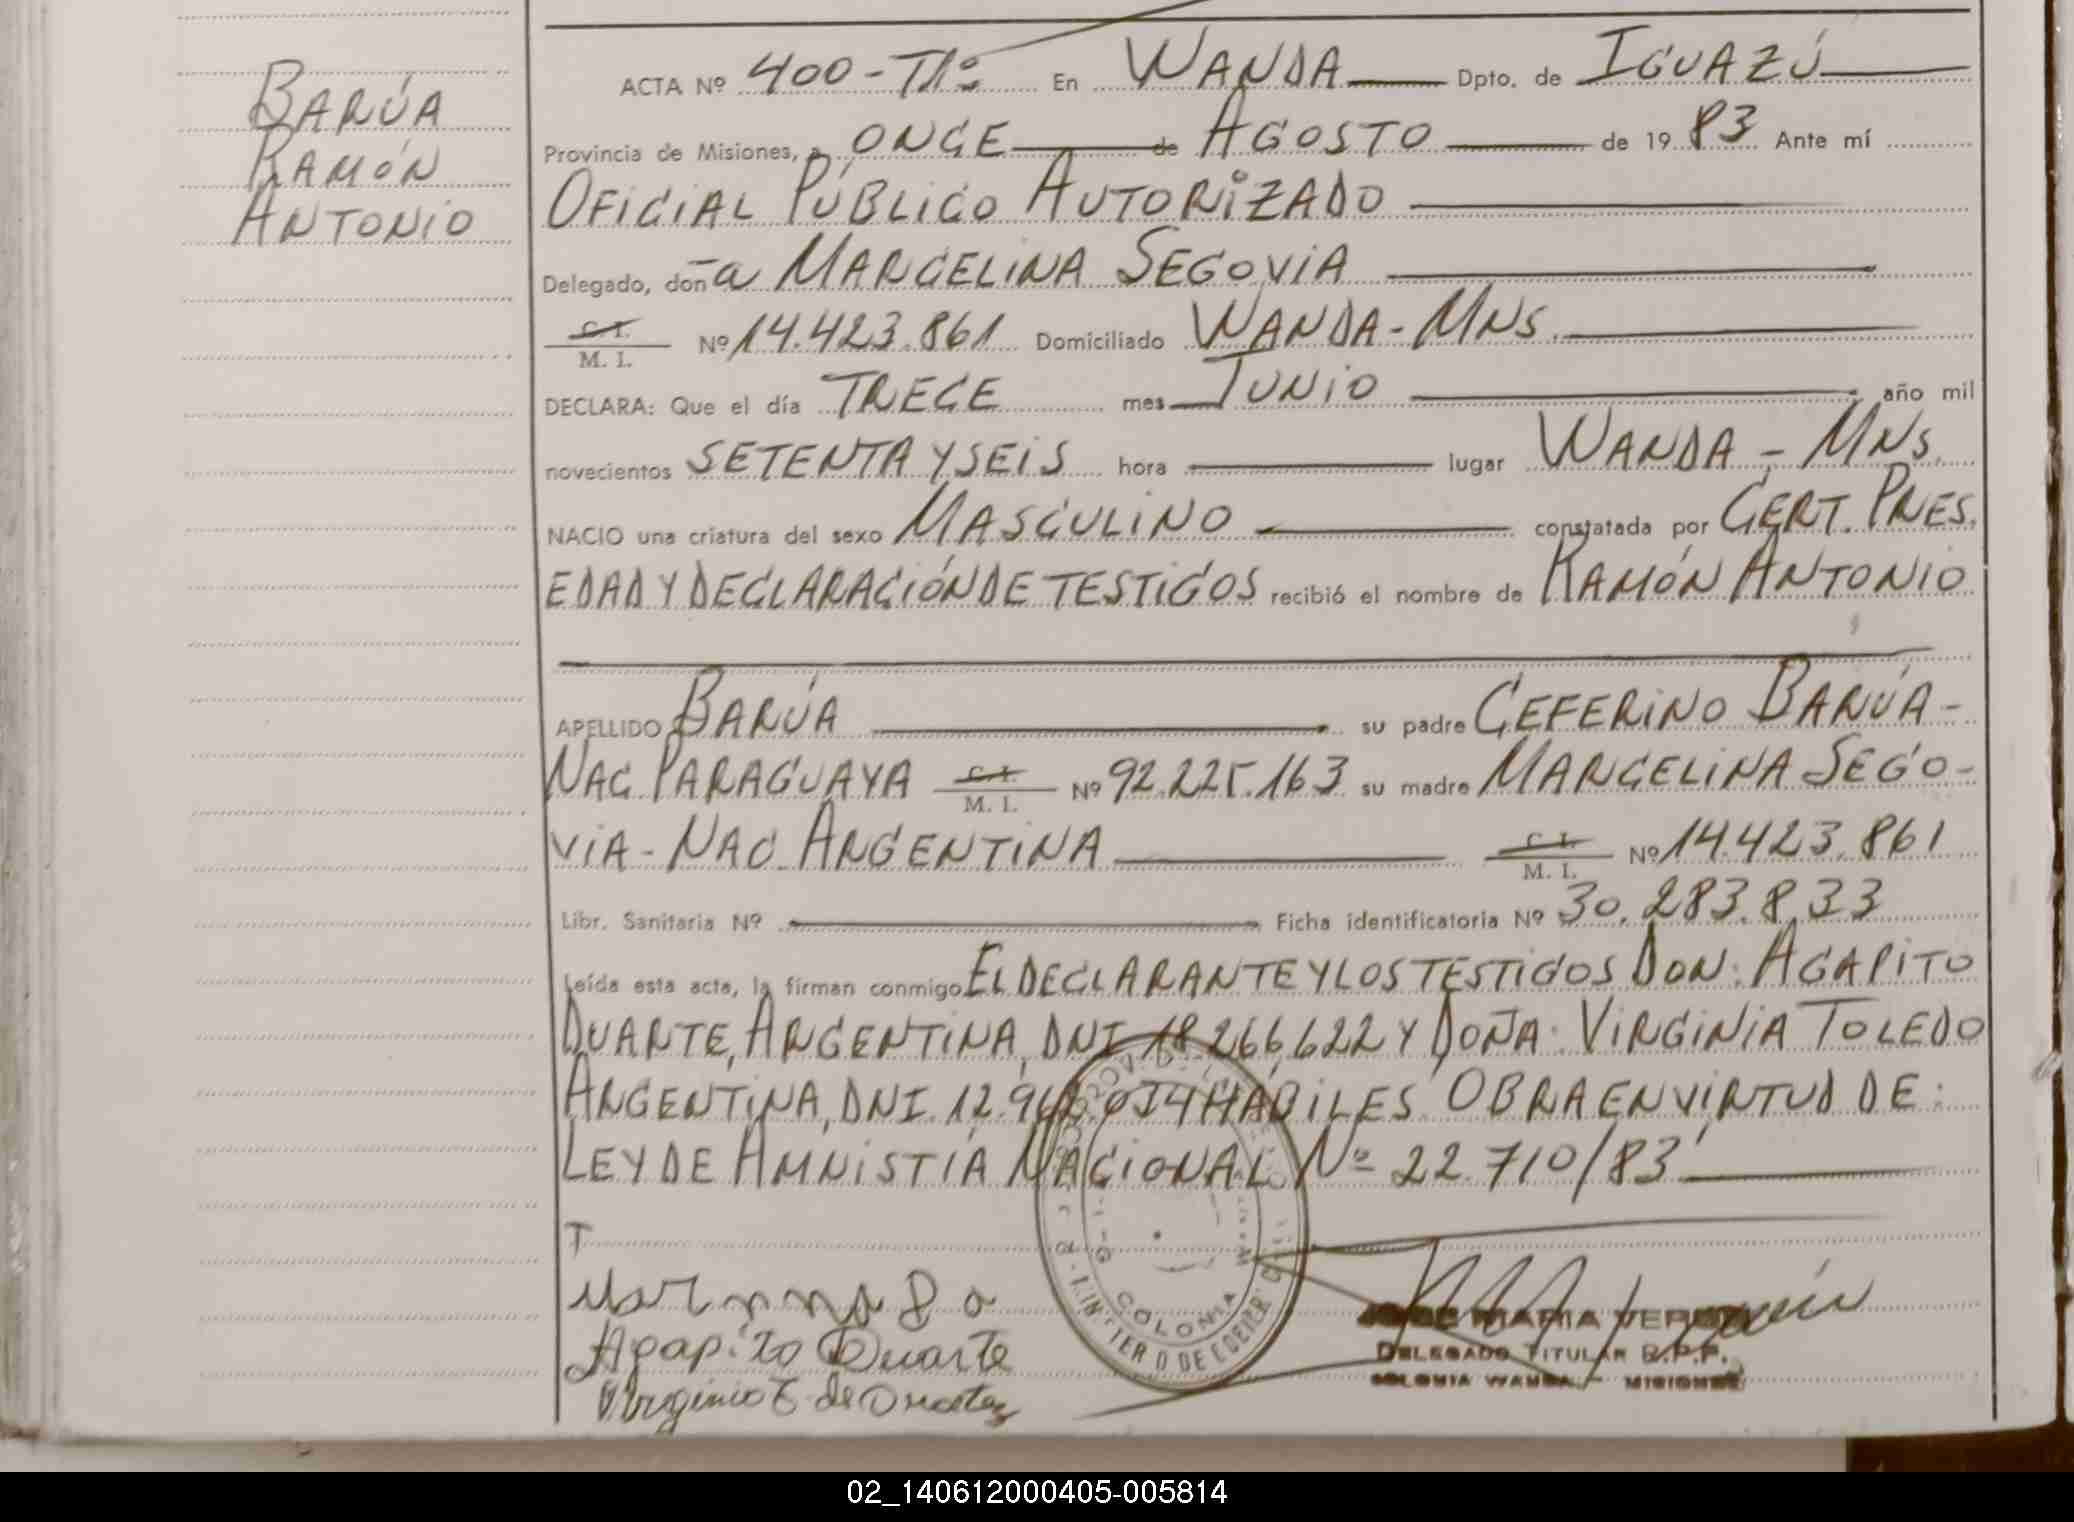 BARÚA
RAMÓN
ANTONIO
ACTA Nº 400-Tº1º En WANDA Dpto. de IGUAZÚ
Provincia de Misiones, a ONCE de AGOSTO de 1983 Ante mí
OFICIAL PÚBLICO AUTORIZADO
Delegado, doña MARCELINA SEGOVIA
C. I.
M. I. Nº 14.423.861 Domiciliado WANDA-MNS.
DECLARA: Que el día TRECE mes JUNIO año mil
novecientos SETENTA Y SEIS hora lugar WANDA-MNS.
NACIO una criatura del sexo MASCULINO constatada por CERT. PRES.
EDAD Y DECLARACIÓN DE TESTIGOS recibió el nombre de RAMÓN ANTONIO
APELLIDO BARÚA su padre CEFERINO BARÚA-
NAC. PARAGUAYA C. I. M. I. Nº 92.225.163 su madre MARCELINA SEGO-
VIA-NAC. ARGENTINA C. I. M. I. Nº 14.423.861
Libr. Sanitaria Nº Ficha identificatoria Nº 30.283.833
Leída esta acta, la firman conmigo EL DECLARANTE Y LOS TESTIGOS DON: AGAPITO
DUARTE, ARGENTINA, DNI 18.266.622 Y DOÑA: VIRGINIA TOLEDO
ARGENTINA, DNI. HÁBILES OBRA EN VIRTUD DE:
LEY DE AMNISTIA NACIONAL Nº 22.710/83
Agapito Duarte
COLONIA
MARIA
DELEGADO TITULAR R.P.P.
COLONIA WANDA - MISIONES
02_140612000405-005814